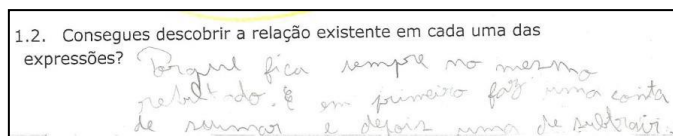 1.2. Consegues descobrir a relação existente em cada uma das
expressões? Porque fica sempre no mesmo
rebultado. E em primeiro faz uma conta
de sumar e depois uma de subtrair.